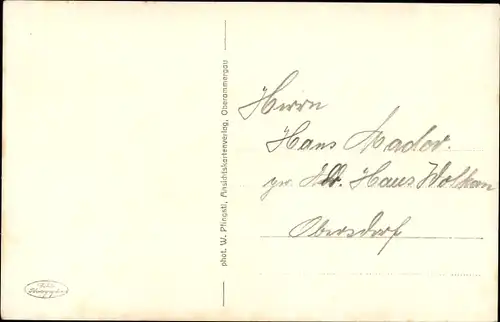 phot. W. Pfingstl, Ansichtskartenverlag, Oberammergau
Herrn
Hans Mader.
Haus Wolkam
Obersdorf